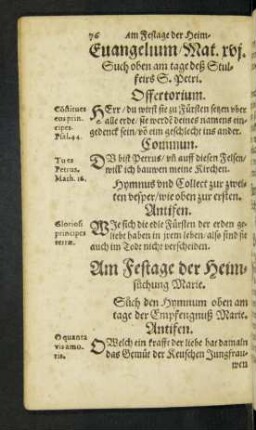 76 Am Festage der Heim-
Euangelium/Mat. xvj.
Such oben am tage deß Stul-
feirs S. Petri.
Offertorium.
Cōstitues
eos prin-
cipes.
Psal. 44.
HErr/du wirst sie zu Fürsten setzen vber
alle erde/sie werdē deines namens ein-
gedenck sein/vō eim geschlecht ins ander.
Commun.
Tu es
Petrus.
Math. 16.
DV bist Petrus/vñ auff diesen Felsen/
will ich bauwen meine Kirchen.
Hymnus vnd Collect zur zwei-
ten vesper/wie oben zur ersten.
Antifen.
Gloriosi
principes
terræ.
WJe sich die edle Fürsten der erden ge-
liebt haben in jrem leben/also sind sie
auch im Todt nicht verscheiden.
Am Festage der Heim-
süchung Marie.
Süch den Hymnum oben am
tage der Empfengnuß Marie.
Antifen.
O quanta
vis amo-
ris.
O Welch ein krafft der liebe hat damaln
das Gemüt der Keuschen Jungfrau-
wen